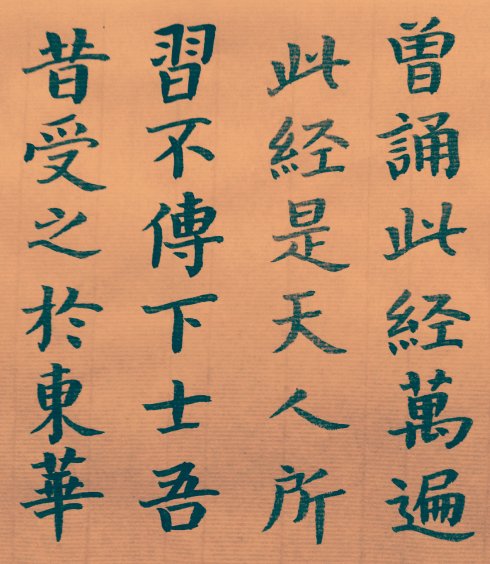 曾誦此経萬遍
此経是天人所
習不傳下士吾
昔受之於東華